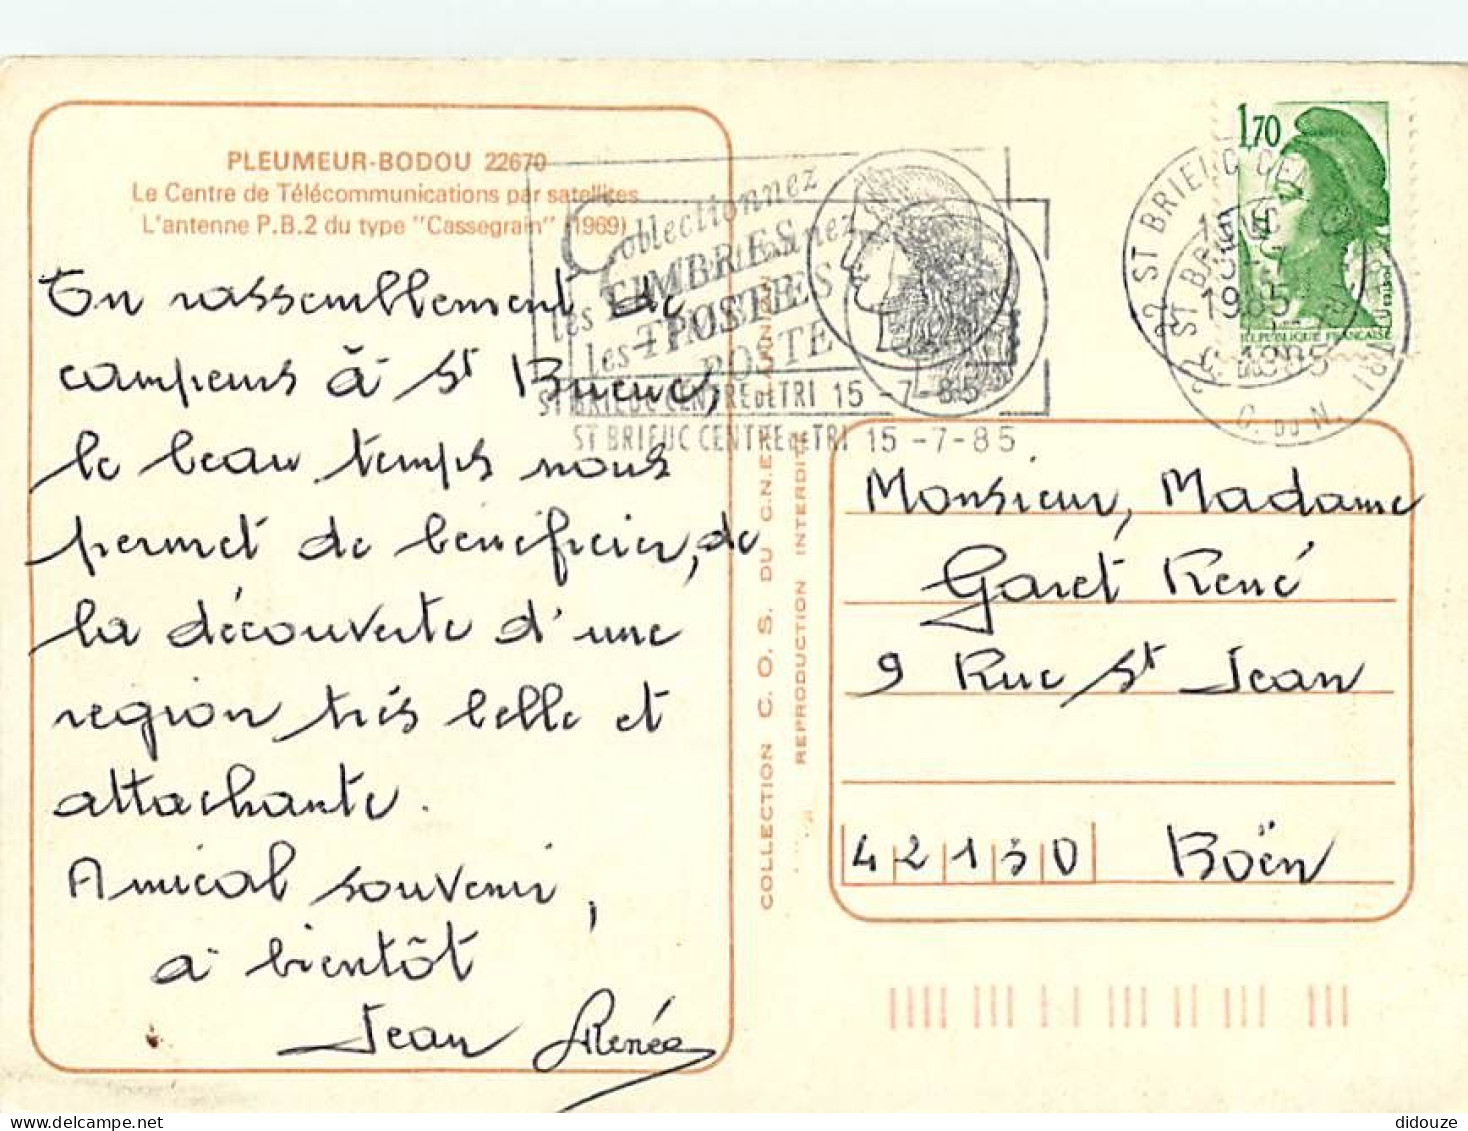 PLEUMEUR-BODOU 22670
Le Centre de Télécommunications par satellites
L'antenne P.B.2 du type "Cassegrain" (1969)
En rassemblement de
campeurs à St Brieuc,
le beau temps nous
permet de bénéficier, de
la découverte d'une
region très belle et
attachante.
Amical souvenir,
à bientôt
Jean Renée
Collectionnez
les TIMBRES
POSTE
ST BRIEUC CENTRE DE TRI 15-7-85
ST BRIEUC CENTRE DE TRI 15-7-85
COLLECTION C.O.S. DU C.N.E.T. LANNION
REPRODUCTION INTERDITE
1,70
REPUBLIQUE FRANCAISE
22 ST BRIEUC CENTRE DE TRI
1985
C. DU N.
Monsieur, Madame
Garet René
9 Rue St Jean
42130 Boën
didouze